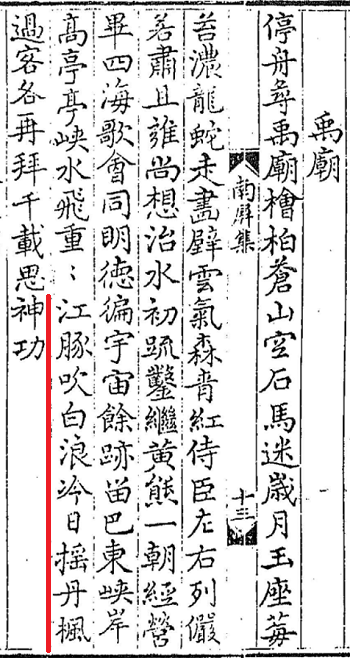 禹廟
停舟尋禹廟檜柏蒼山空石馬迷歲月玉座莓
南屏集
十三
苔濃龍蛇走畫壁雲氣森青紅侍臣左右列儼
若肅且雍尚想治水初疏鑿繼黃熊一朝經營
畢四海歌會同明德徧宇宙餘跡留巴東峽岸
高亭亭峽水飛重〻江豚吹白浪冷日搖丹楓
過客各再拜千載思神功